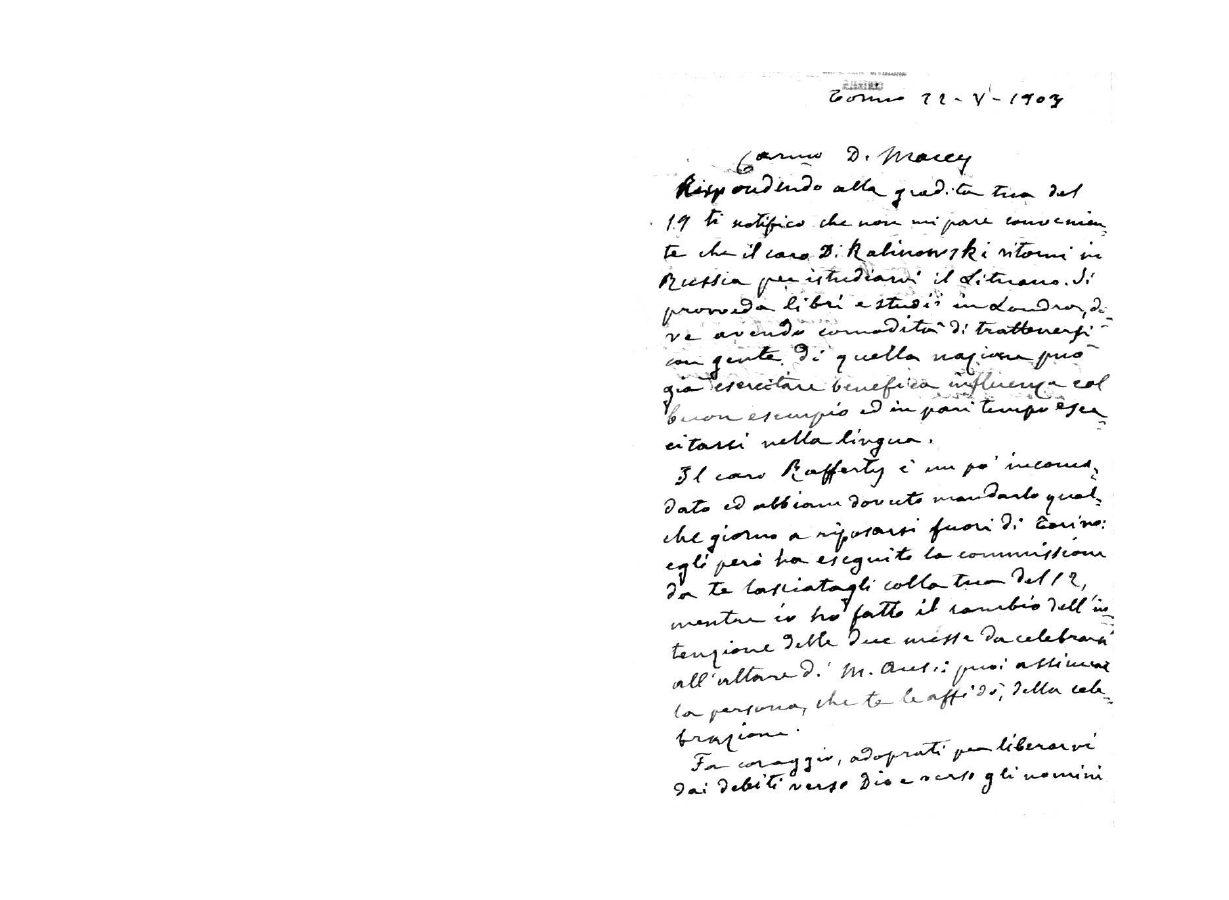 Torino 22-V-1903
Carmo D. Macey
Rispondendo alla gradita tua del
19 ti notifico che non mi pare convenien
te che il caro D. Kalinowski ritorni in
Russia per istudiarvi il Lituano. Si
provveda libri e studii in Londra, do-
ve avendo comodità di trattenersi
con gente di quella nazione può
già esercitare benefica influenza col
buon esempio ed in pari tempo eser
citarsi nella lingua.
Il caro Rafferty è un po' incomo-
dato ed abbiam dovuto mandarlo qual-
che giorno a riposarsi fuori di Torino:
egli però ha eseguito la commissione
da te lasciatagli colla tua del 12,
mentre io ho fatto il cambio dell'in
tenzione delle due messe da celebrarsi
all'altare di M. Aus.: puoi assicurar
la persona, che te le affidò, della cele-
brazione.
Fa coraggio, adoprati per liberarvi
dai debiti verso Dio e verso gli uomini